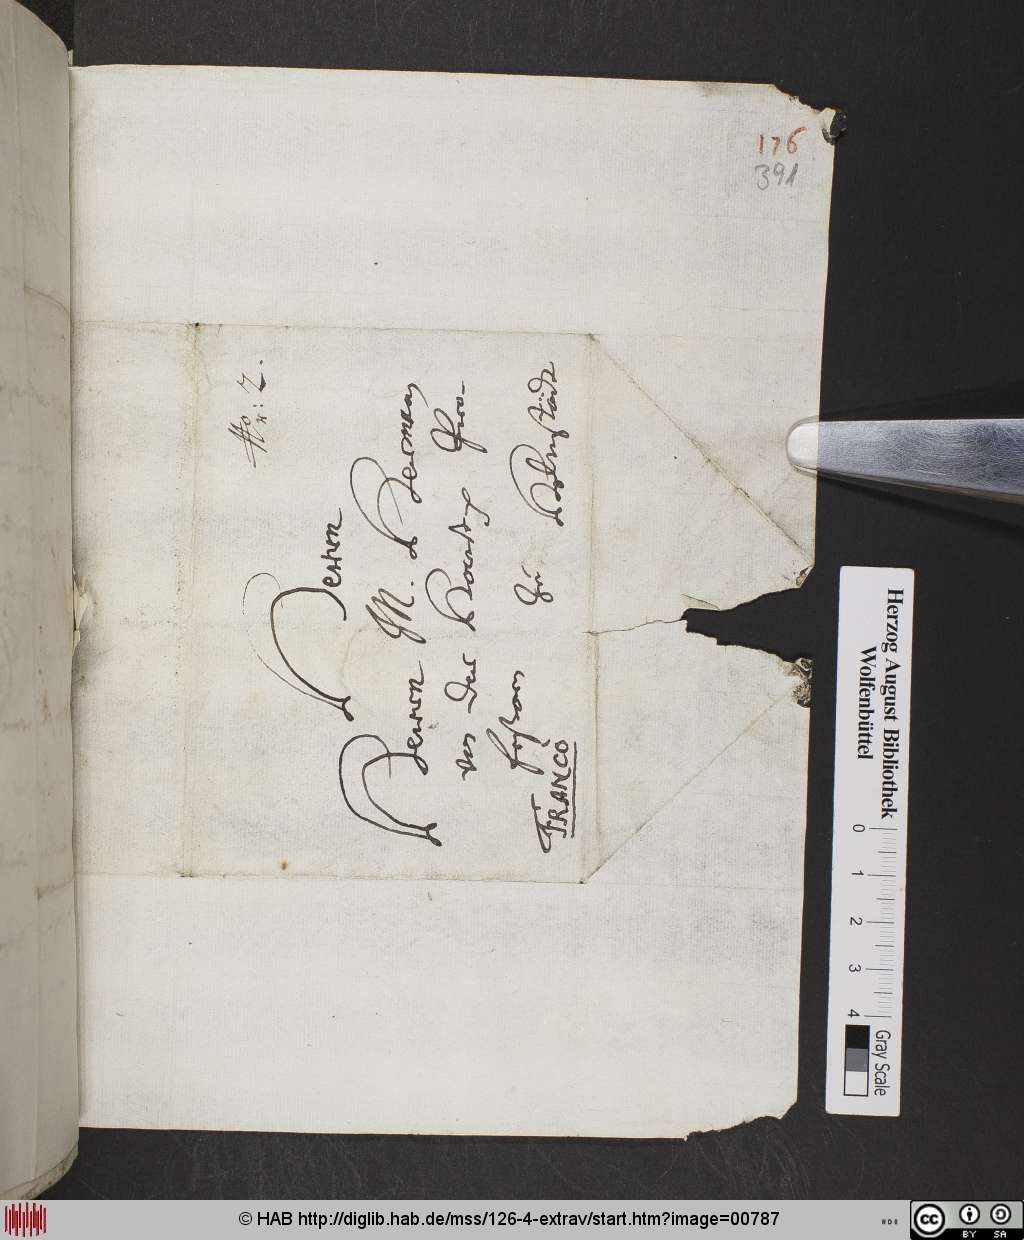 176
391
No: 2.
Herrn
Herrn M. Herman
von der Hardt Pro-
fessorn zu Helmstädt
FRANCO
Herzog August Bibliothek
Wolfenbüttel
0 1 2 3 4
Gray Scale
© HAB http://diglib.hab.de/mss/126-4-extrav/start.htm?image=00787
cc BY SA